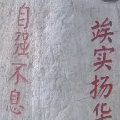 自强不息
竢实扬华